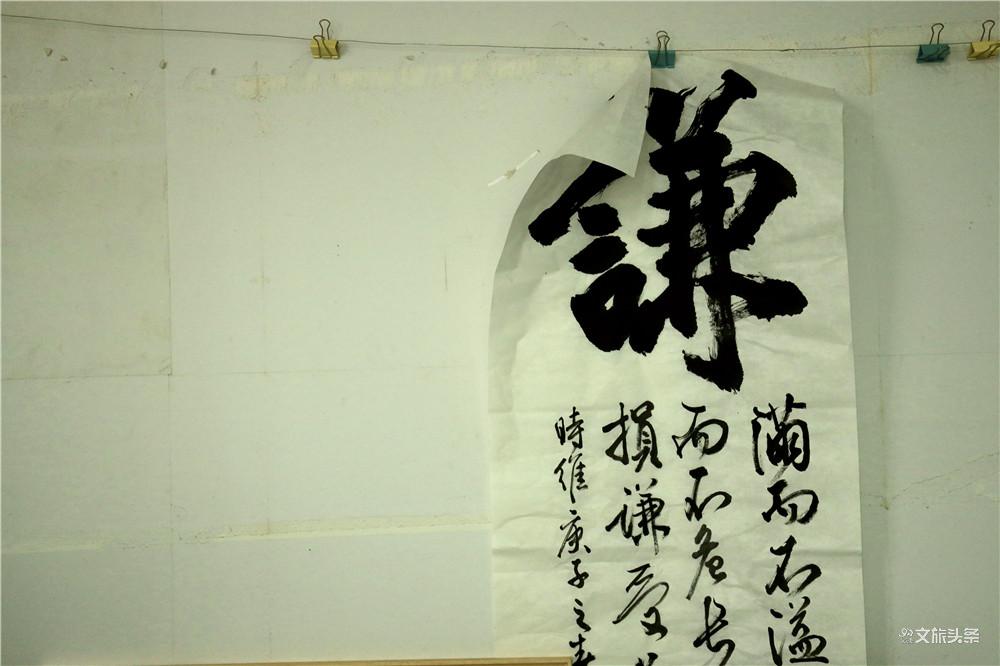 謙
滿而不溢
而不危長
損謙受
時維庚子之春
文旅头条